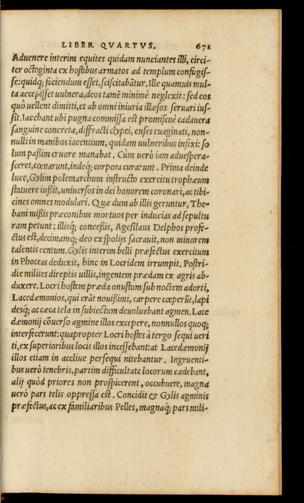 LIBER QVARTVS. 671
Aduenere interim equites quidam nunciantes illi, circi-
ter octoginta ex hostibus armatos ad templum confugis-
se: quidq; faciendum esset, sciscitabãtur. Ille quamuis mul-
ta accepisset uulnera, deos tamẽ minimè neglexit: sed eos
quò uellent dimitti, et ab omni iniuria illæsos seruari ius-
sit. Iacebant ubi pugna commissa est promiscuè cadauera
sanguine concreta, diffracti clypei, enses euaginati, non-
nulli in manibus iacentium, quidam uulneribus infixi: so
lum passim cruore manabat. Cùm uerò iam aduespera-
sceret, cœnarunt, indeq; corpora curarunt. Prima deinde
luce, Gylim polemarchum instructo exercitu trophæum
statuere iußit, uniuersos in dei honorem coronari, ac tibi-
cines omnes modulari. Quæ dum ab illis geruntur, The-
bani mißis præconibus mortuos per inducias ad sepultu
ram petunt: illisq; conceßis, Agesilaus Delphos profe-
ctus est, decimamq; deo ex spolijs sacrauit, non minorem
talentis centum. Gylis interim belli præfectus exercitum
in Phoceas deduxit, hinc in Locridem irrumpit. Postri-
die milites direptis uillis, ingentem prædam ex agris ab-
duxere. Locri hostem præda onustum sub noctem adorti,
Lacedæmonios, qui erãt nouißimi, carpere cœperũt, lapi
desq; ac cæca tela in subiectum deuoluebant agmen. Lace
dæmonij cõuerso agmine illos excepere, nonnullos quoq;
interfecerunt: quapropter Locri hostes à tergo sequi ueri
ti, ex superioribus locis illos incessebant: at Lacedæmonij
illos etiam in accliue persequi nitebantur. Ingruenti-
bus uerò tenebris, partim difficultate locorum cadebant,
alij quòd priores non prospicerent, occubuere, magna
uerò pars telis oppressa est. Concidit & Gylis agminis
præfectus, ac ex familiaribus Pelles, magnaq; pars mili-